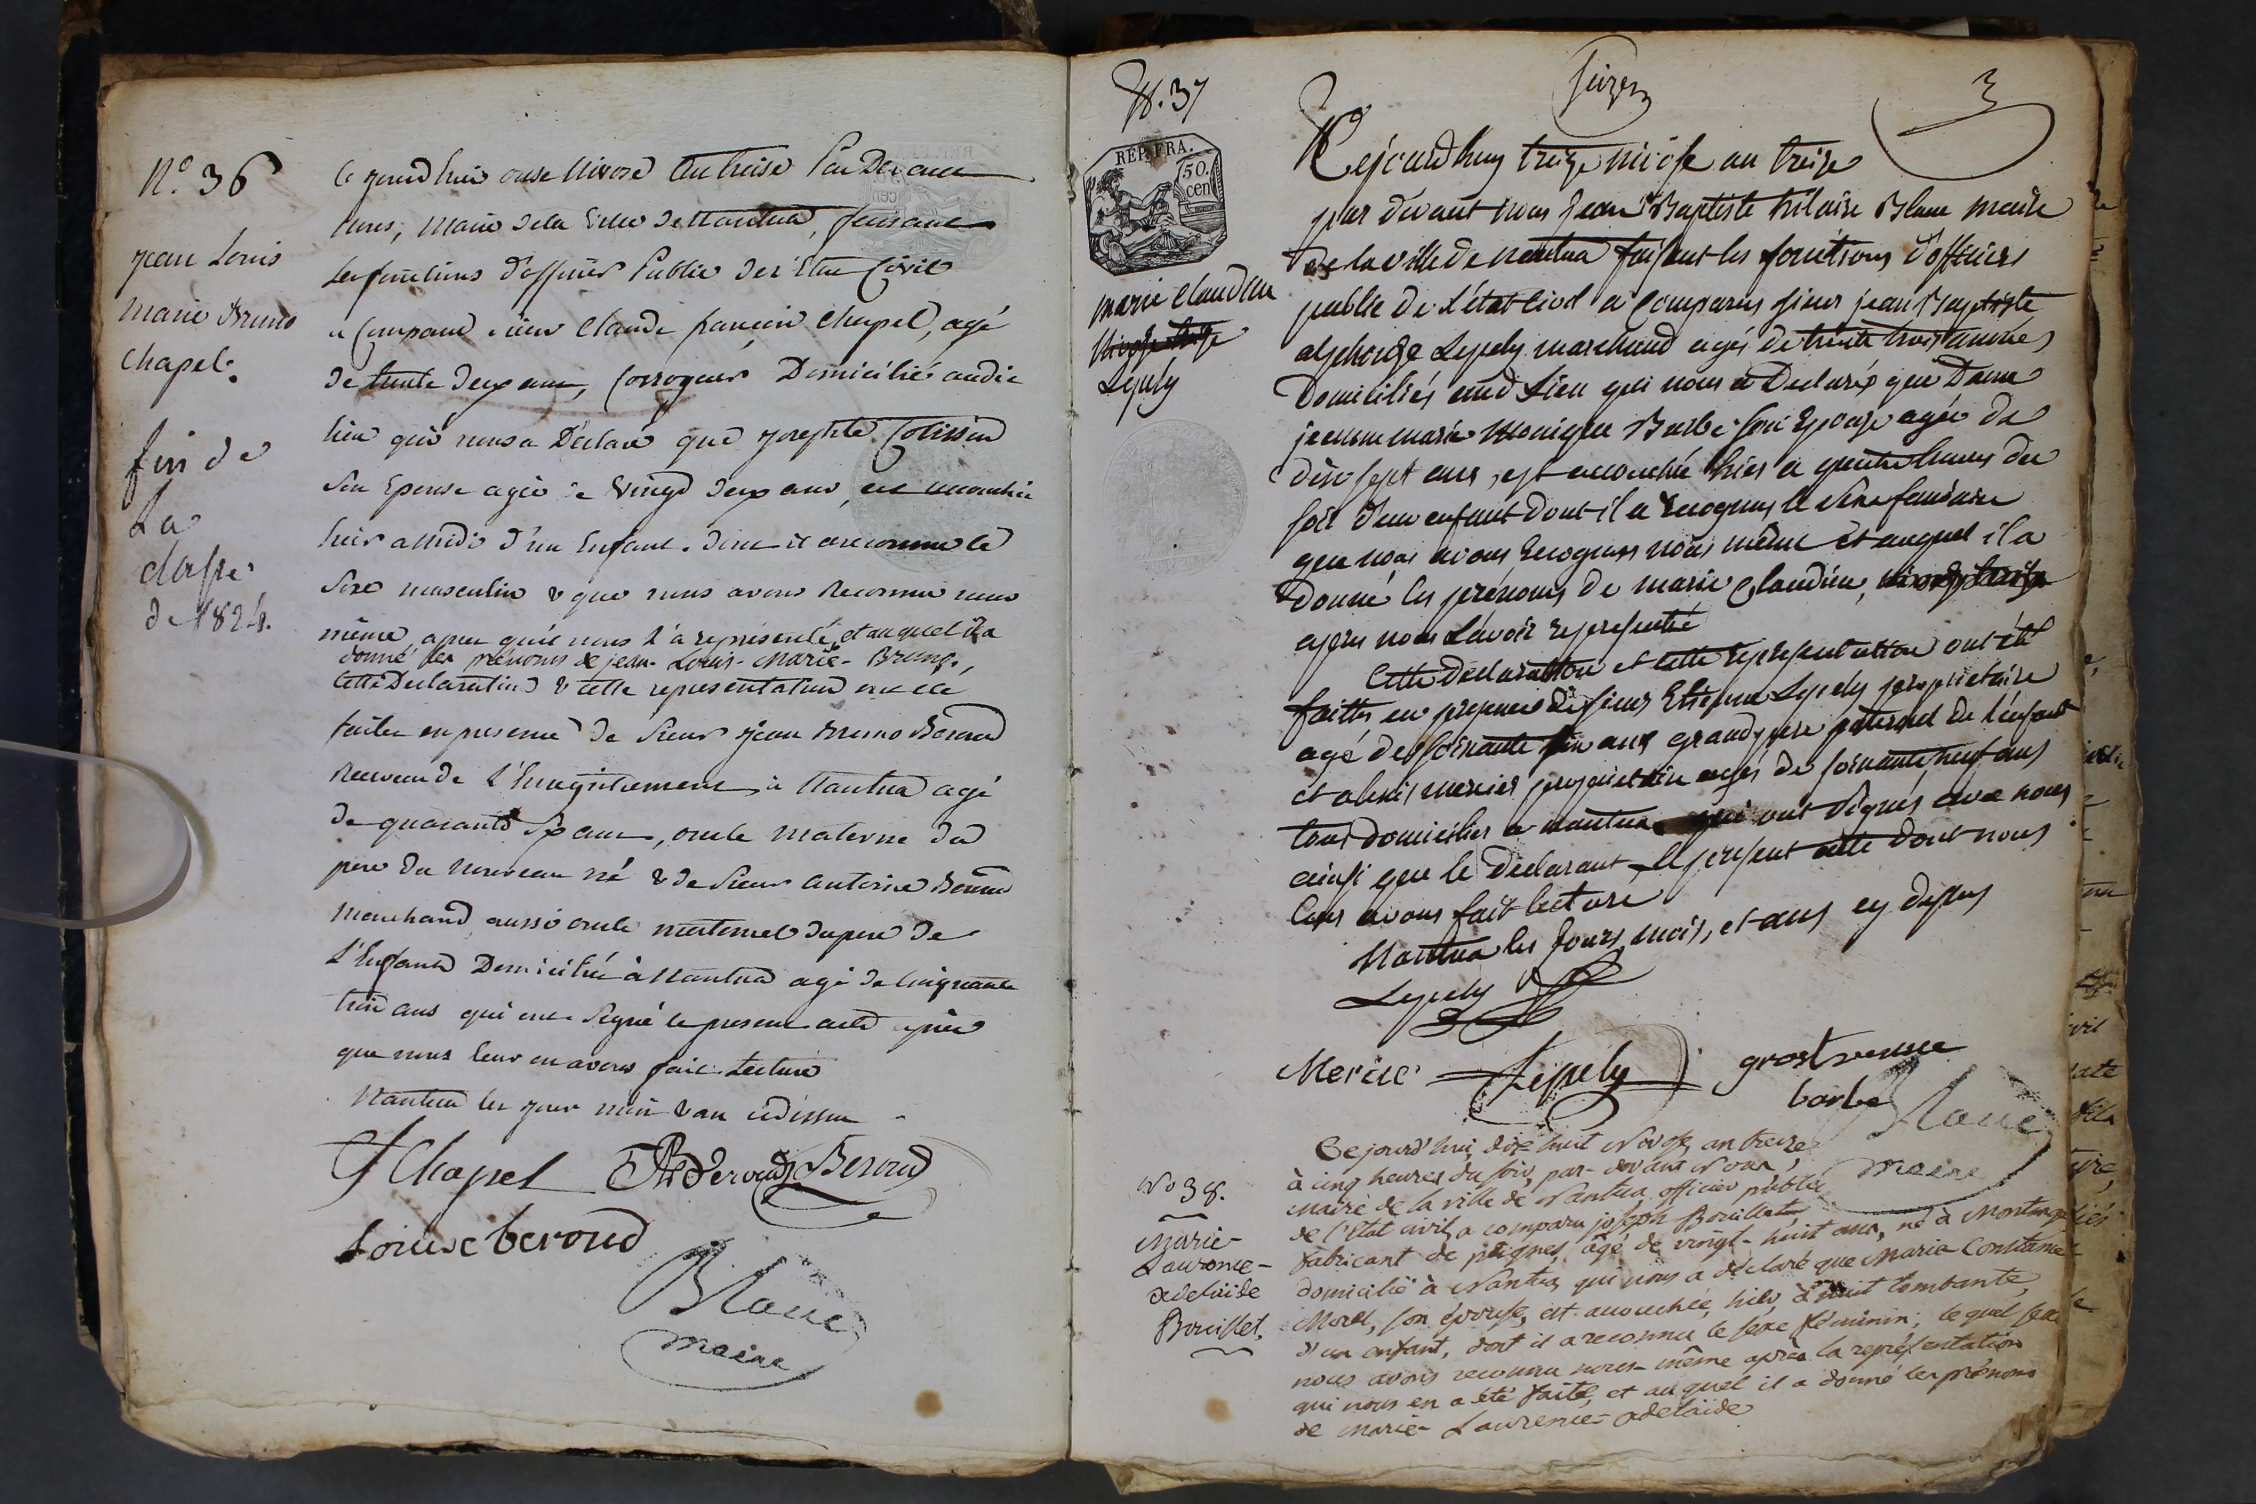 N.o 36
jean Louis
marie Bruno
Chapel.
fin de
La
classe
de 1824.
Ce jourd'hui onze Nivose An treise Par Devant
Nous, Maire de la Ville de Nantua, faisant
les fonctions d'officier Public de l'Etat Civil
a Comparu sieur Claude françois Chapel, agé
de trente deux ans, Corroyeur Domicilié audit
lieu qui nous a Déclaré que josephte
son Epouse agée de Vingt deux ans, est accouchée
hier a Midi d'un Enfant dont il a reconnu le
Sexe masculin & que nous avons Reconnu nous
même, apres qu'il nous l'a représenté, et auquel il a
donné les prénoms de jean-Louis-Marie-Bruno,
Cette Declaration & cette representation ont été
faites en presence de Sieur jean Bruno Beroud
Receveur de L'Enregistrement à Nantua agé
de quarante Six ans, oncle materne du
pere du nouveau né & de Sieur antoine Beroud
Marchand aussi oncle maternel du pere de
L'Enfant Domicilié à Nantua agé de Cinquante
trois ans qui ont Signé le present acte après
que nous leur en avons fait Lecture
Nantua les jour mois & an cidessus
Chapel Beroud Beroud
Louise beroud
Blanc
maire
N. 37
REP. FRA.
50.
cen
marie Claudine
Nivose treize
Lepely
Seize
3
Cejourd'huy treize nivose an treize
par devant nous Jean Baptiste hilaire Blanc maire
de la ville de nantua faisant les fonctions d'officiers
public de L'état Civil a Comparus sieur jean Baptiste
alphonse Lepely marchand agés de trente trois années
Domiciliés aud Lieu qui nous a Declarés que Dame
jeanne marie Monique Barbe son Epouse agée de
dix sept ans, est accouchée hier a quatre heures du
soir d'un enfant dont il a Recognus le sexe
que nous avons Recognus nous même et auquel il a
donné les prénoms de marie Claudine, nivose treize
apres nous L'avoir representé
Cette declaration et cette representation ont été
faittes en presence de sieur Etienne Lepely propriétaire
agé de soixante ans grand père paternel de l'enfant
et mercier propriétaire agés de soixante neuf ans
tous domiciliés a nantua qui ont signés avec nous
ainsi que le Declarant le present acte dont nous
Leurs avons fait lecture
Nantua les jours, mois, et ans cy dessus
Lepely
Mercier Lepely grost veuve
barbe
Blanc
maire
No 38.
Marie-
Laurence-
adelaide
Bouillet.
Ce jourd'hui dix-huit Nivose, an treize
à cinq heures du soir, par-devant Nous,
maire de la ville de Nantua officier public
de l'Etat civil, a comparu joseph Bouillet,
fabricant de peignes, âgé de vingt-huit ans, né à
domicilié à Nantua, qui nous a déclaré que Marie Constance
Morel, son épouse, est accouchée, hier, à nuit tombante,
d'un enfant, dont il a reconnu le sexe féminin; le quel sexe
nous avons reconnu nous-même après la représentation
qui nous en a été faite, et au quel il a donné les prénoms
de marie-Laurence-adelaïde